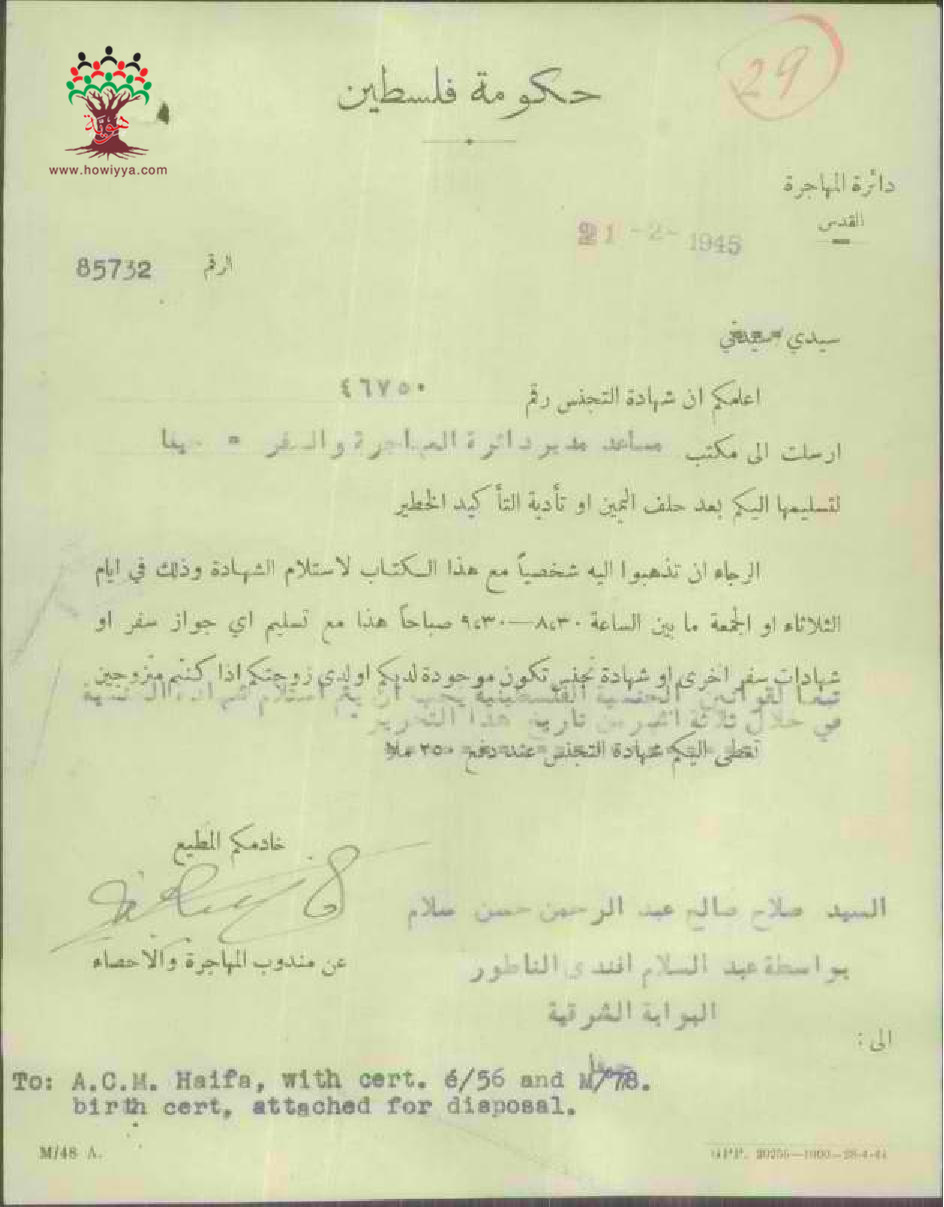 هوية
www.howiyya.com
29
حكومة فلسطين
دائرة المهاجرة
القدس
21 -2- 1945
الرقم 85732
سيدي
اعلمكم ان شهادة التجنس رقم ٤٦٧٥٠
ارسلت الى مكتب مساعد مدير دائرة المهاجرة والسفر = حيفا
لتسليمها اليكم بعد حلف اليمين او تأدية التأكيد الخطير
الرجاء ان تذهبوا اليه شخصياً مع هذا الكتاب لاستلام الشهادة وذلك في ايام
الثلاثاء او الجمعة ما بين الساعة ٨،٣٠—٩،٣٠ صباحاً هذا مع تسليم اي جواز سفر او
شهادات سفر اخرى او شهادة تجنس تكون موجودة لديكم او لدى زوجتكم اذا كنتم متزوجين
تبعا لقوانين الجنسية الفلسطينية يجب ان يتم استلام شهادة
في خلال ثلاثة اشهر من تاريخ هذا التحرير
تعطى اليكم شهادة التجنس عند دفع ٢٥٠ ملا
خادمكم المطيع
عن مندوب المهاجرة والاحصاء
السيد صلاح صالح عبد الرحمن حسن سلام
بواسطة عبد السلام افندي الناطور
البوابة الشرقية
حيفا
الى :
To: A.C.M. Haifa, with cert. 6/56 and M/78.
birth cert, attached for disposal.
M/48 A.
GPP. 20256—1000—28-4-44